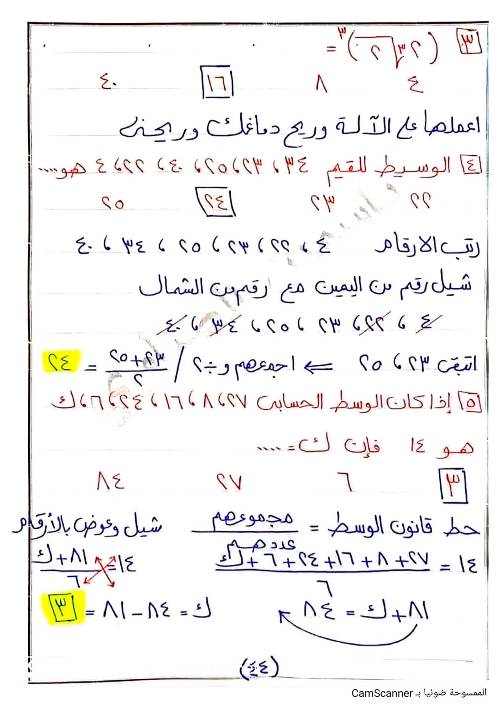 ٣ (٢ ٣√٢)٣ =
٤ ٨ ١٦ ٤٠
اعملها على الآلة وريح دماغك وريحنى
٤ الوسيط للقيم ٣٤ ، ٢٣ ، ٢٥ ، ٤٠ ، ٢٢ ، ٤ هو ....
٢٢ ٢٣ ٢٤ ٢٥
رتب الارقام ٤ ، ٢٢ ، ٢٣ ، ٢٥ ، ٣٤ ، ٤٠
شيل رقم من اليمين مع رقم من الشمال
٤ ، ٢٢ ، ٢٣ ، ٢٥ ، ٣٤ ، ٤٠
اتبقى ٢٣ ، ٢٥ ⇐ اجمعهم و ÷ ٢ / ٢٣+٢٥ / ٢ = ٢٤
٥ إذا كان الوسط الحسابى ٢٧ ، ٨ ، ١٦ ، ٢٤ ، ٦ ، ك
هو ١٤ فإن ك = ....
٣ ٦ ٢٧ ٨٤
حط قانون الوسط = مجموعهم / عددهم شيل وعوض بالأرقام
١٤ = ٢٧ + ٨ + ١٦ + ٢٤ + ٦ + ك / ٦ ١٤ = ٨١ + ك / ٦
٨١ + ك = ٨٤ ك = ٨٤ - ٨١ = ٣
(٤٤)
الممسوحة ضوئيا بـ CamScanner